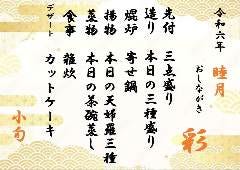 令和六年
睦月
おしながき
彩
先付　三点盛り
造り　本日の三種盛り
焜炉　寄せ鍋
揚物　本日の天婦羅三種
蒸物　本日の茶碗蒸し
食事　雑炊
デザート　カットケーキ
小旬